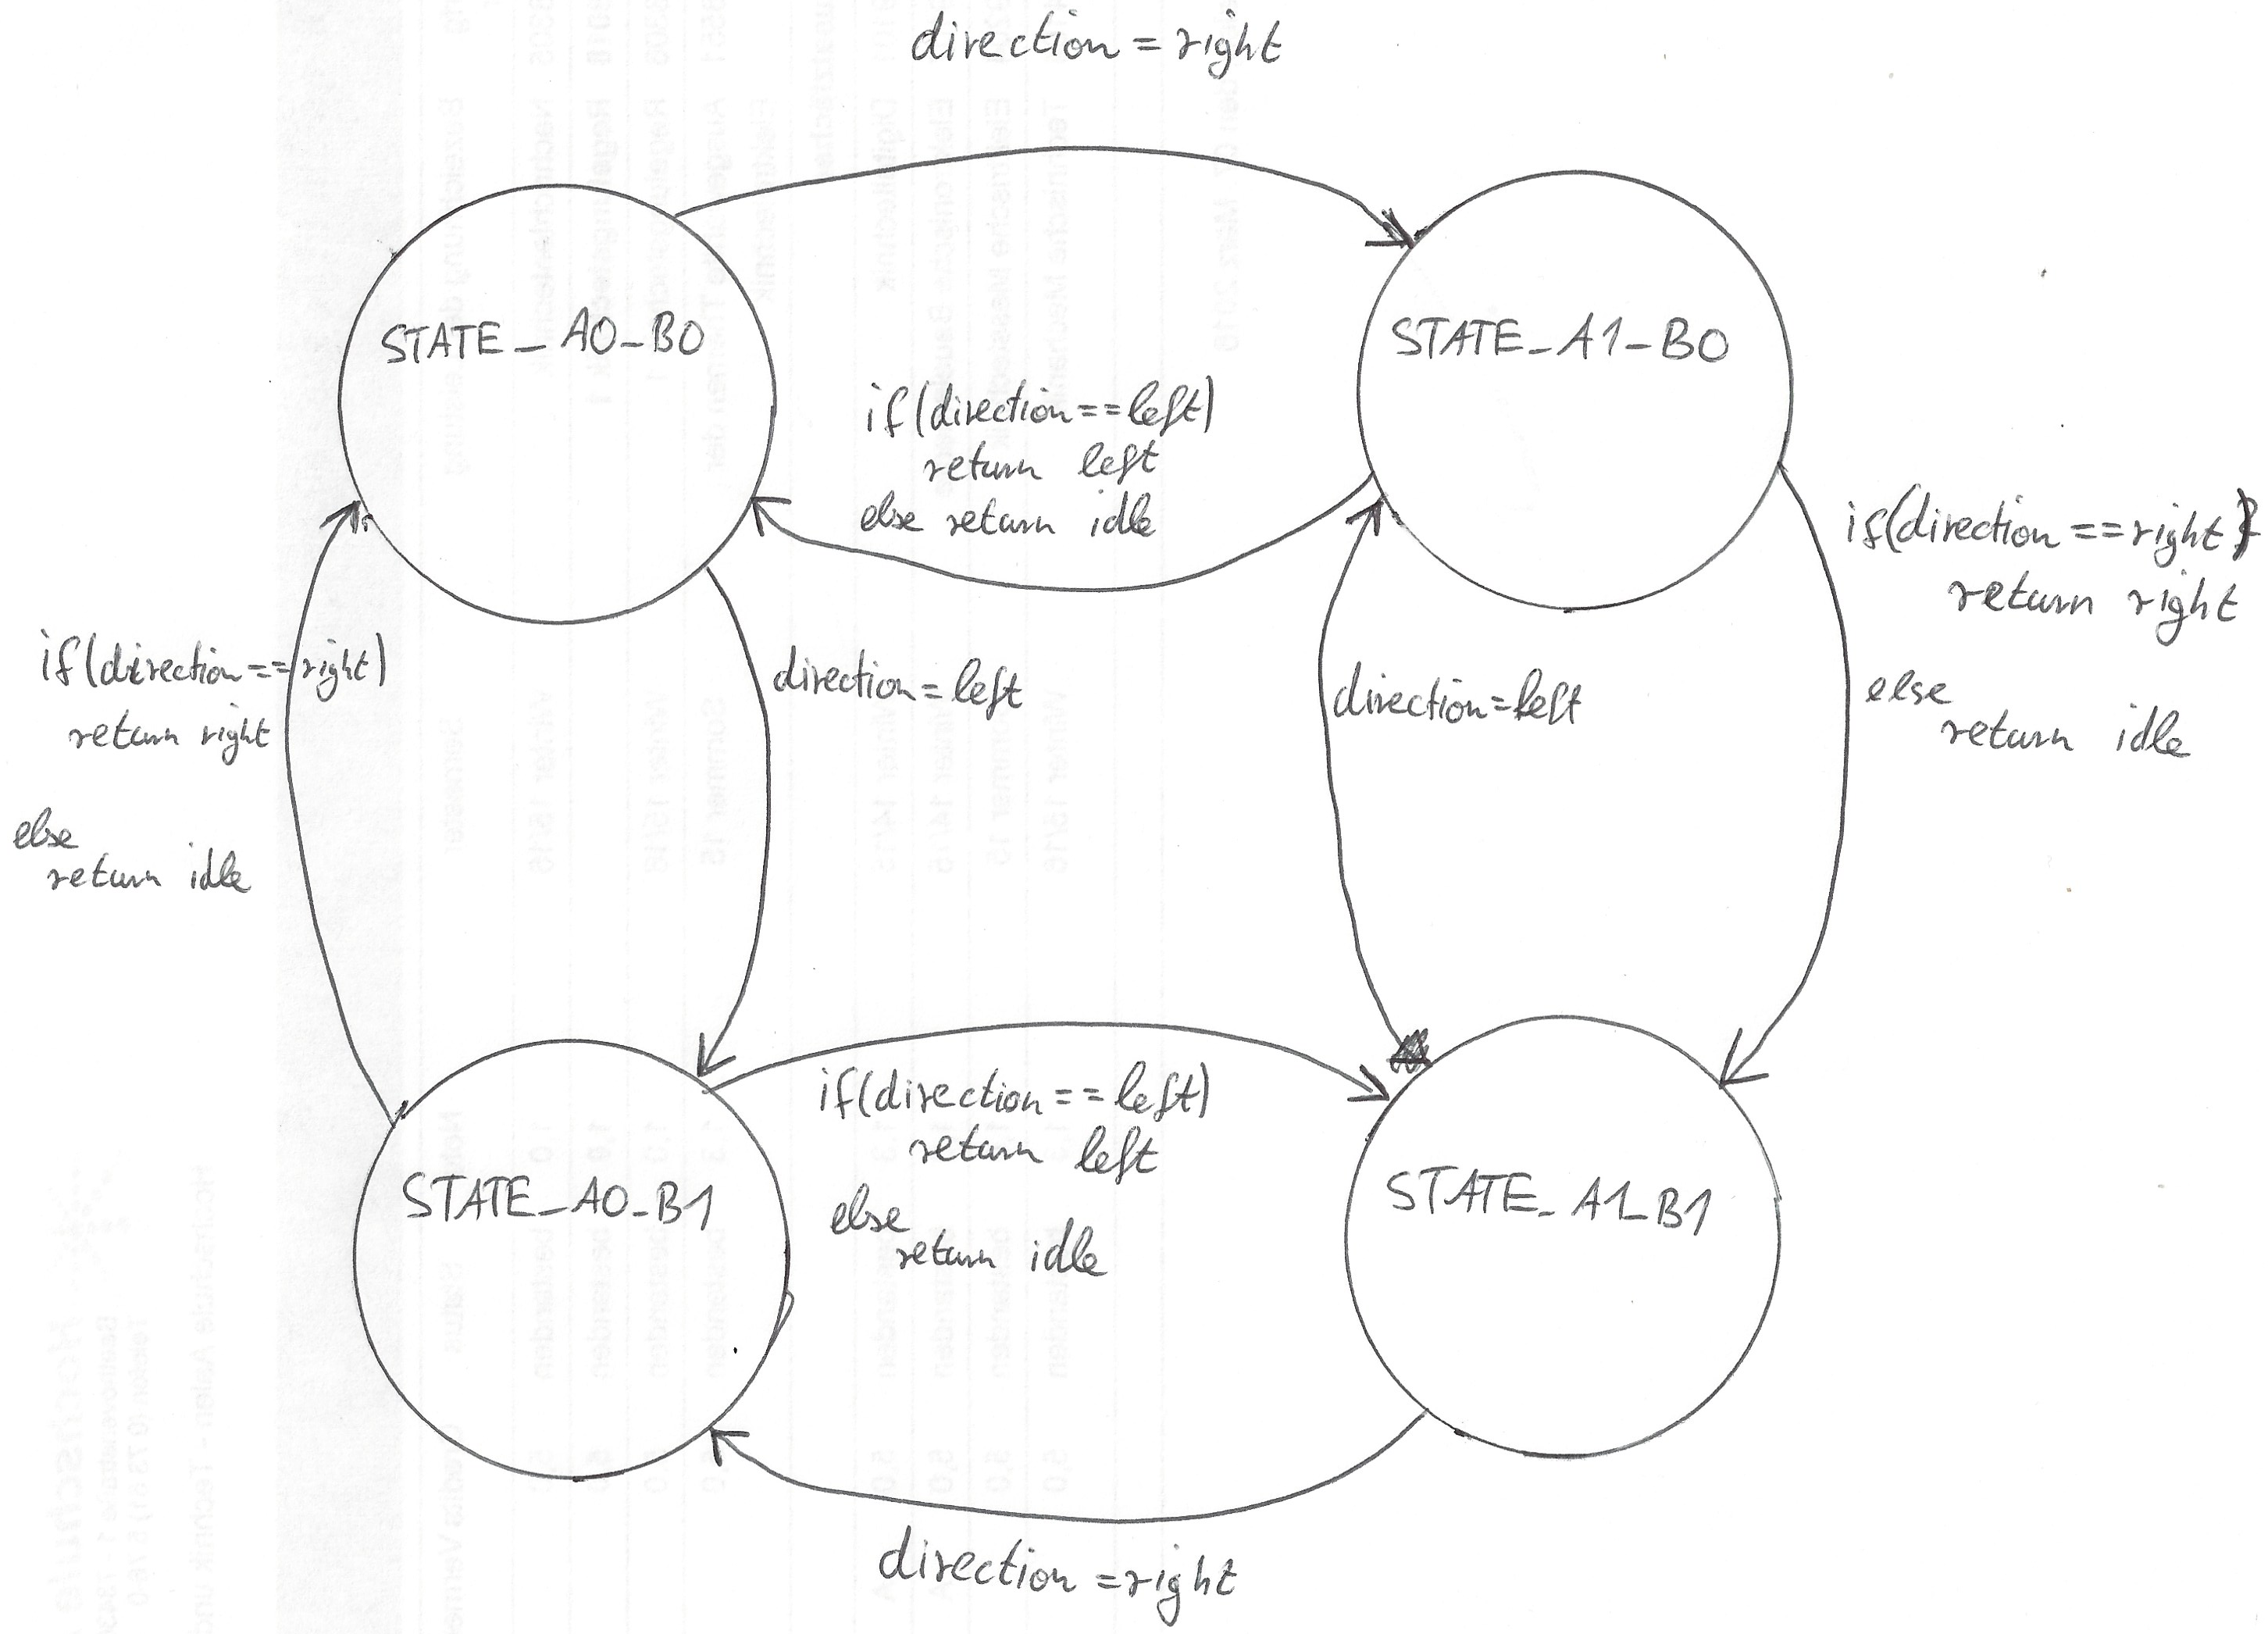 direction = right
STATE_A0_B0
STATE_A1_B0
if(direction==left)
return left
else return idle
if(direction==right)
return right
else
return idle
if(direction==right)
return right
else
return idle
direction=left
direction=left
STATE_A0_B1
if(direction==left)
return left
else
return idle
STATE_A1_B1
direction=right